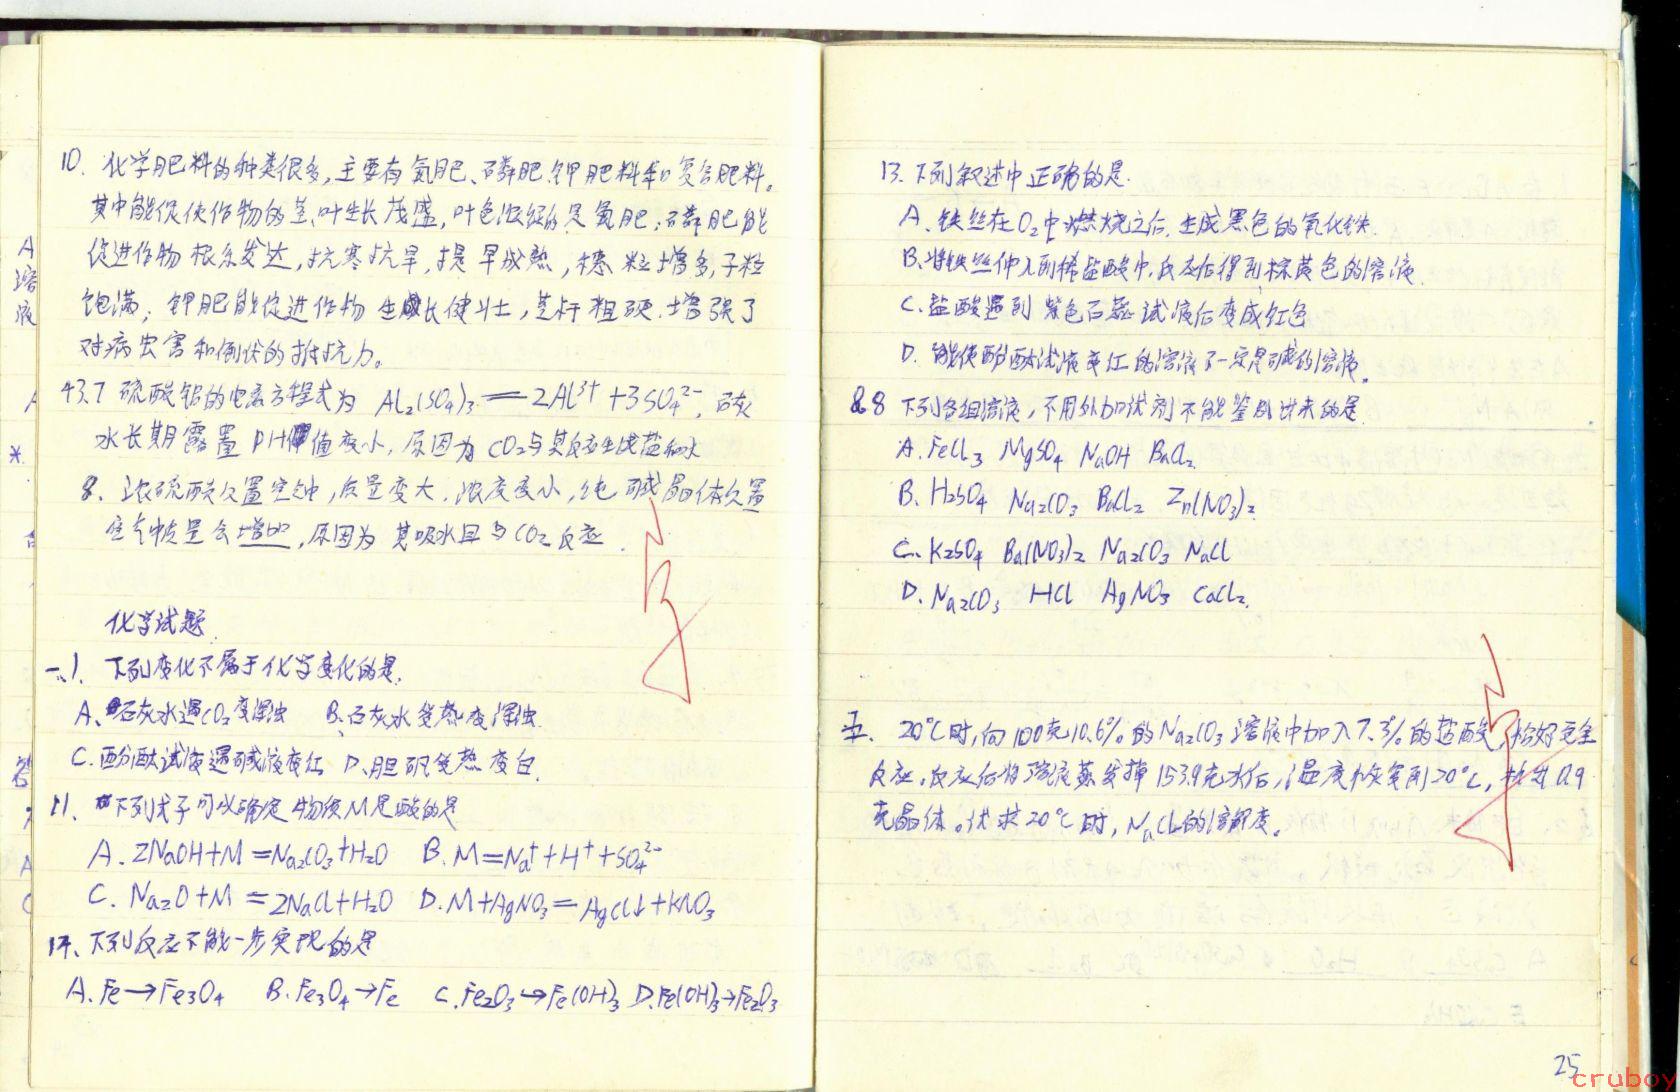 10. 化学肥料的种类很多,主要有氮肥、磷肥、钾肥料和复合肥料。
其中能促使作物的茎、叶生长茂盛,叶色浓绿的是氮肥;磷肥能
促进作物根系发达,抗寒抗旱,提早成熟,穗粒增多,子粒
饱满;钾肥能促进作物生长健壮,茎杆粗硬,增强了
对病虫害和倒伏的抵抗力。
43.7 硫酸铝的电离方程式为 Al₂(SO₄)₃ = 2Al³⁺ + 3SO₄²⁻,
水长期露置PH值变小,原因为CO₂与其反应生成盐和水
8. 浓硫酸久置空气中,质量变大,浓度变小,纯碱晶体久置
空气中质量会增加,原因为其吸水且与CO₂反应.
化学试题.
一、1. 下列变化不属于化学变化的是.
A、石灰水遇CO₂变浑浊 B、石灰水受热变浑浊.
C. 酚酞试液遇碱液变红 D、胆矾受热变白.
11、下列式子可以确定物质M是酸的是
A. 2NaOH+M=Na₂CO₃+H₂O B. M=Na⁺+H⁺+SO₄²⁻
C. Na₂O+M=2NaCl+H₂O D. M+AgNO₃=AgCl↓+KNO₃
14、下列反应不能一步实现的是
A. Fe→Fe₃O₄ B. Fe₃O₄→Fe C. Fe₂O₃→Fe(OH)₃ D. Fe(OH)₃→Fe₂O₃
13. 下列叙述中正确的是.
A、铁丝在O₂中燃烧之后,生成黑色的氧化铁.
B、将铁丝伸入到稀盐酸中,反应后得到棕黄色的溶液.
C. 盐酸遇到紫色石蕊试液后变成红色
D. 能使酚酞试液变红的溶液不一定是碱的溶液。
8 下列各组溶液,不用外加试剂不能鉴别出来的是
A. FeCl₃ MgSO₄ NaOH BaCl₂
B. H₂SO₄ Na₂CO₃ BaCl₂ Zn(NO₃)₂
C. K₂SO₄ Ba(NO₃)₂ Na₂CO₃ NaCl
D. Na₂CO₃ HCl AgNO₃ CaCl₂.
五、20℃时,向100克10.6%的Na₂CO₃溶液中加入7.3%的盐酸,恰好完全
反应。反应后将溶液蒸发掉153.9克水后,温度恢复到20℃,析出0.9
克晶体。试求20℃时,NaCl的溶解度。
25
cruboy